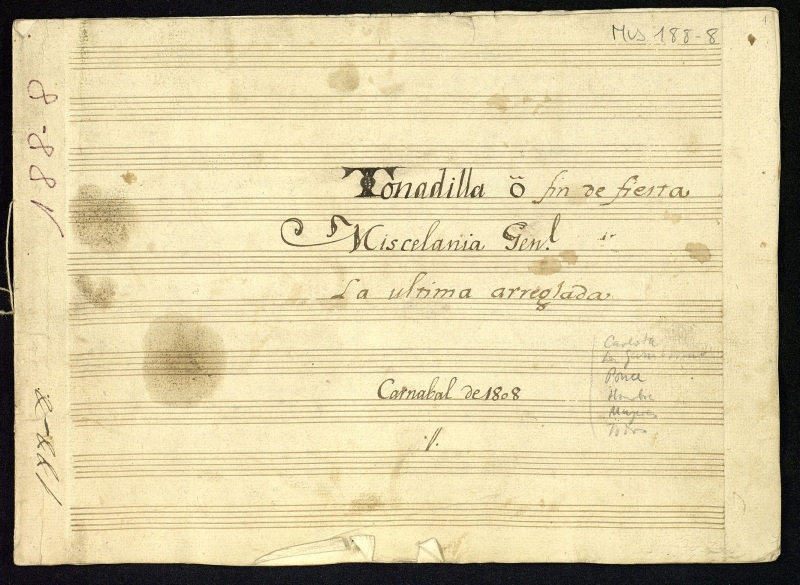 Mus 188-8
1
188-8
Tonadilla ö fin de fiesta
Miscelania Gen.l
La ultima arreglada
Carnabal de 1808
Carlota
Ponce
Hombre
Mujeres
Todos
188-8